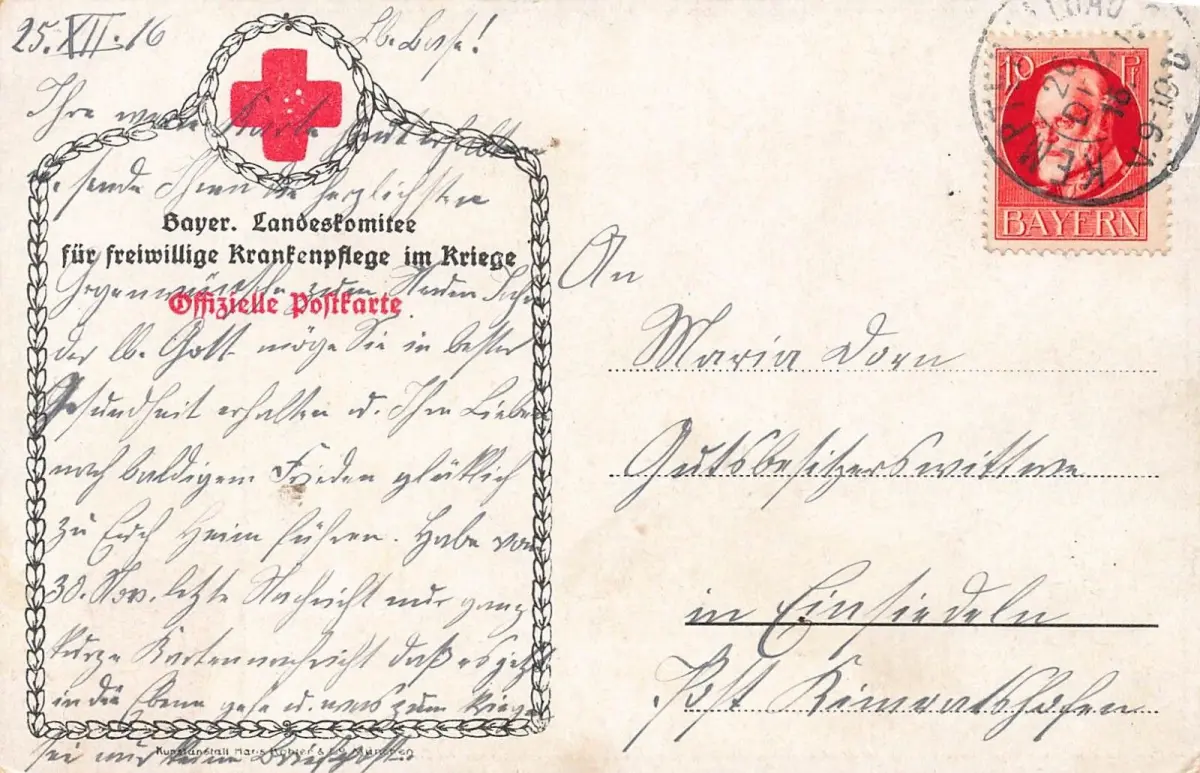 25. XII. 16 Lb. Base!
Ihre werte Karte erhalten
u. sende Ihnen die herzlichsten
Bayer. Landeskomitee
für freiwillige Krankenpflege im Kriege
zum Neuen Jahr
Offizielle Postkarte
der lb. Gott möge Sie in bester
Gesundheit erhalten u. Ihre Lieben
nach baldigem Frieden glücklich
zu Euch heim führen. Habe vom
30. Nov. letzte Nachricht nur ganz
kurze Kartennachricht daß es jetzt
in die Ebene gehe u. was zum
sei nur keine
Kunstanstalt Hans Köhler & Co. München
10 Pf
BAYERN
KEMPTEN
26 DEZ
16
9-10
An
Maria Dorn
Gutsbesitzerswittwe
in Einsiedeln
Post Kimratshofen